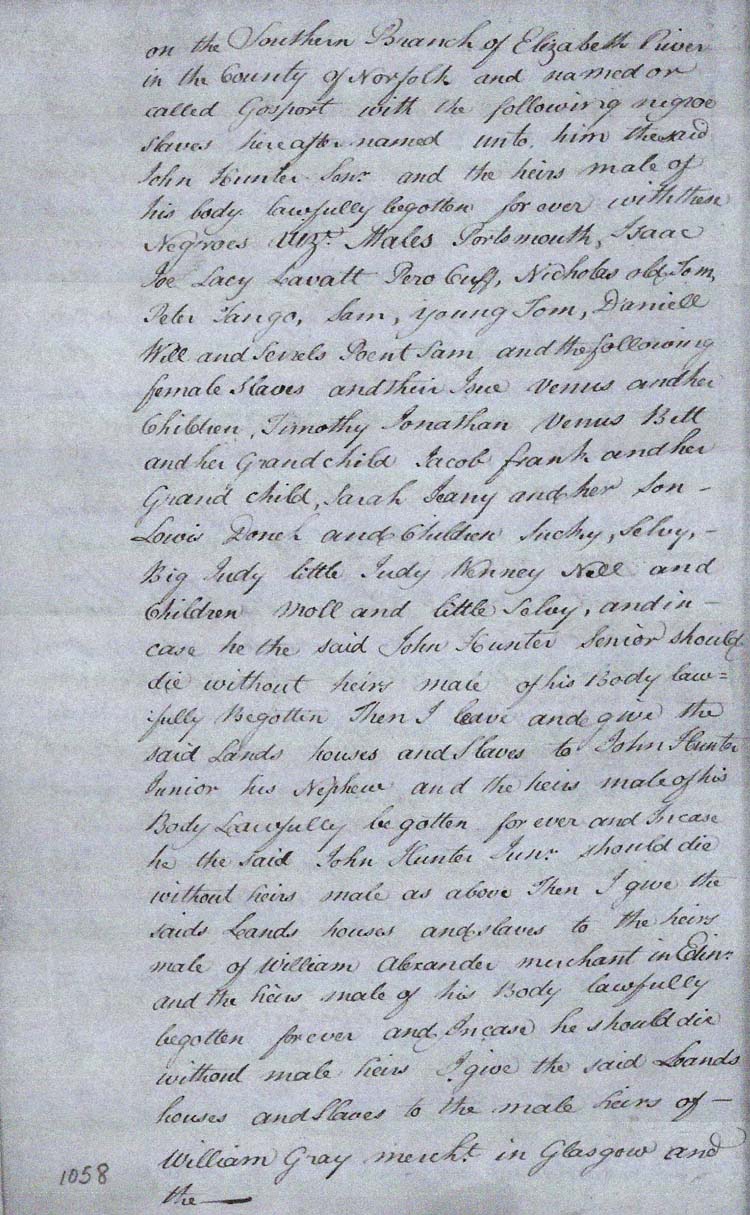 on the Southern Branch of Elizabeth River
in the County of Norfolk and named or
called Gosport with the following negroe
slaves hereafter named unto him the said
John Hunter Senr. and the heirs male of
his body lawfully begotten for ever with these
Negroes Vizt. Males Portsmouth, Isaac
Joe Lacy Lavatt Pero Cuff, Nicholas old Tom,
Peter Tango, Sam, young Tom, Daniell
Will and Serrels Poent Sam and the following
female Slaves and their Isue Venus and her
Children, Timothy Jonathan Venus Bett
and her Grandchild Jacob frank and her
Grand child, Sarah Jeany and her Son -
Lewis and Children Suchy, Selvy, -
Big Judy little Judy Nell and
Children Moll and little Selvy, and in -
case he the said John Hunter Senior should
die without heirs male of his Body law=
:fully Begotten Then I leave and give the
said Lands houses and Slaves to John Hunter
Junior his Nephew and the heirs male of his
Body Lawfully begotten for ever and Incase
he the said John Hunter Junr. should die
without heirs male as above Then I give the
saids Lands houses and slaves to the heirs
male of William Alexander merchant in Edinr.
and the heirs male of his Body lawfully
begotten for ever and Incase he should die
without male heirs I give the said Lands
houses and Slaves to the male heirs of -
William Gray mercht. in Glasgow and
the —
1058